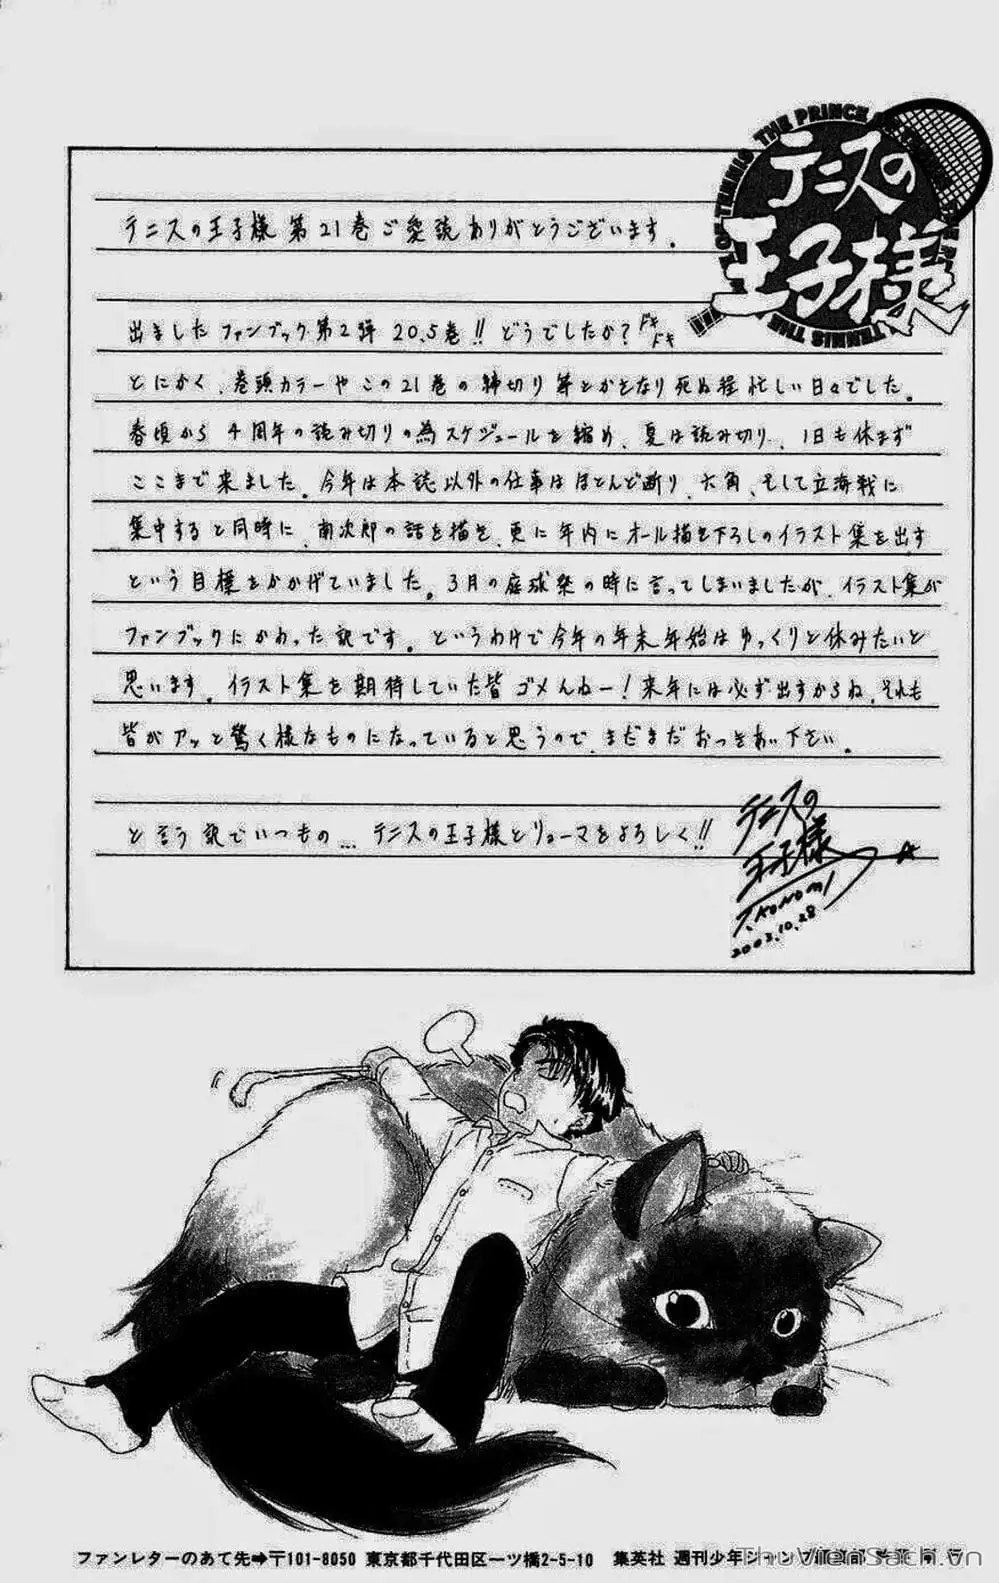 THE PRINCE OF TENNIS THE PRINCE OF TENNIS
テニスの
王子様
テニスの王子様 第21巻ご愛読ありがとうございます。
出ましたファンブック第2弾 20.5巻!! どうでしたか? ドキドキ
とにかく、巻頭カラーやこの21巻の締切り等とかさなり死ぬ程忙しい日々でした。
春頃から4周年の読み切りの為スケジュールを縮め、夏は読み切り、1日も休まず
ここまで来ました。今年は本誌以外の仕事はほとんど断り、六角、そして立海戦に
集中すると同時に、南次郎の話を描き、更に年内にオール描き下ろしのイラスト集を出す
という目標をかかげていました。3月の庭球祭の時に言ってしまいましたが、イラスト集が
ファンブックにかわった訳です。というわけで今年の年末年始はゆっくりと休みたいと
思います。イラスト集を期待していた皆ゴメんねー!来年には必ず出すからね。それも
皆がアッと驚く様なものになっていると思うので、まだまだおつきあい下さい。
と言う訳でいつもの… テニスの王子様とリョーマをよろしく!!
テニスの
王子様
T.KONOMI
2003.10.28
ファンレターのあて先➡〒101-8050 東京都千代田区一ツ橋2-5-10 集英社 週刊少年ジャンプ編集部
ThuVienSach.vn